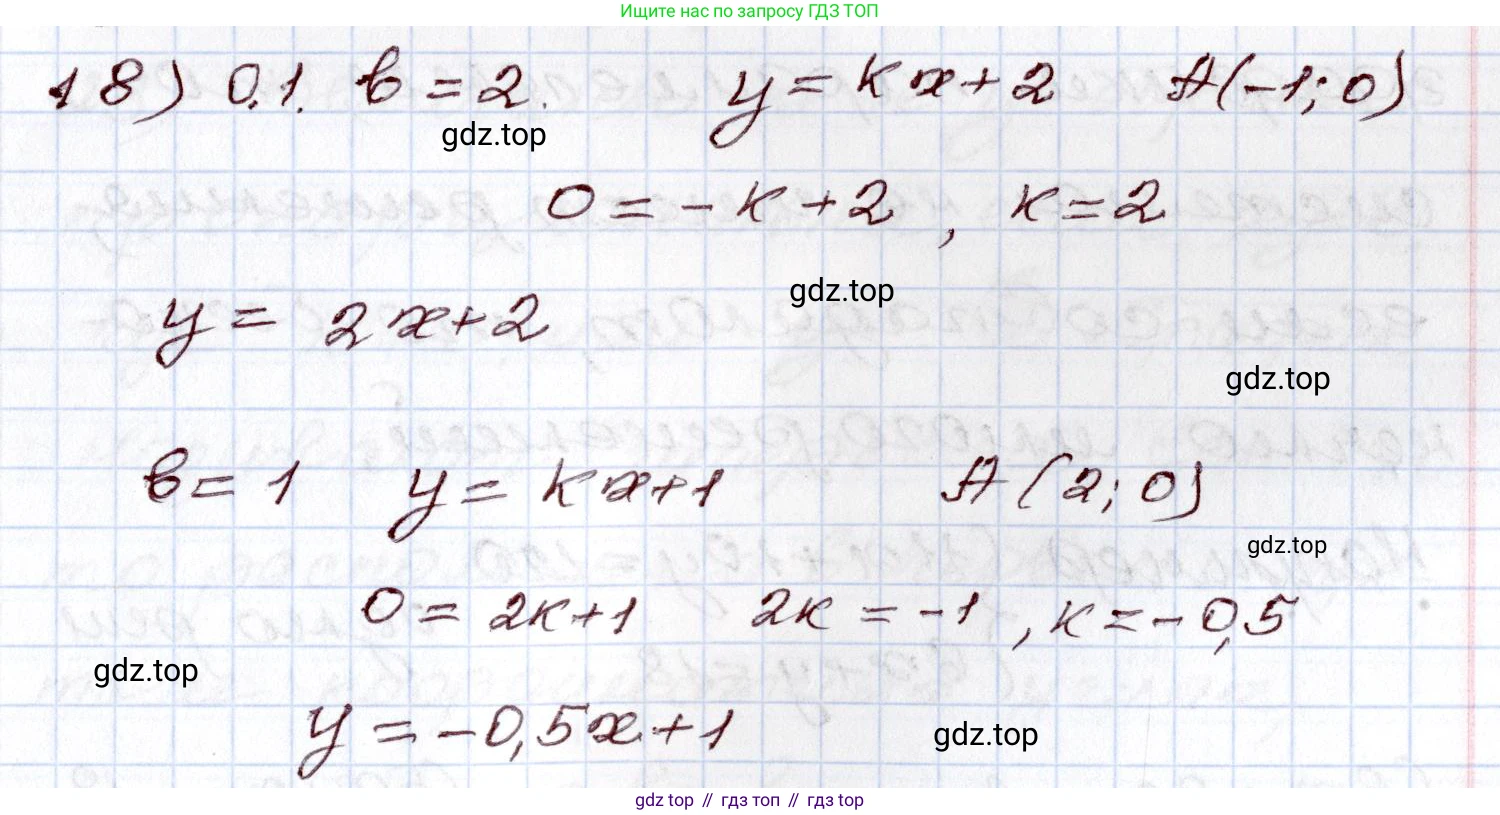 Ищите нас по запросу ГДЗ ТОП
18) 0.1. в = 2. y = кx + 2 A(-1; 0)
gdz.top
0 = -к + 2, к = 2
gdz.top
y = 2x + 2
gdz.top
в = 1 y = кx + 1 A(2; 0)
gdz.top
0 = 2к + 1 2к = -1, к = -0,5
gdz.top
y = -0,5x + 1
gdz.top
gdz top // гдз топ // гдз top